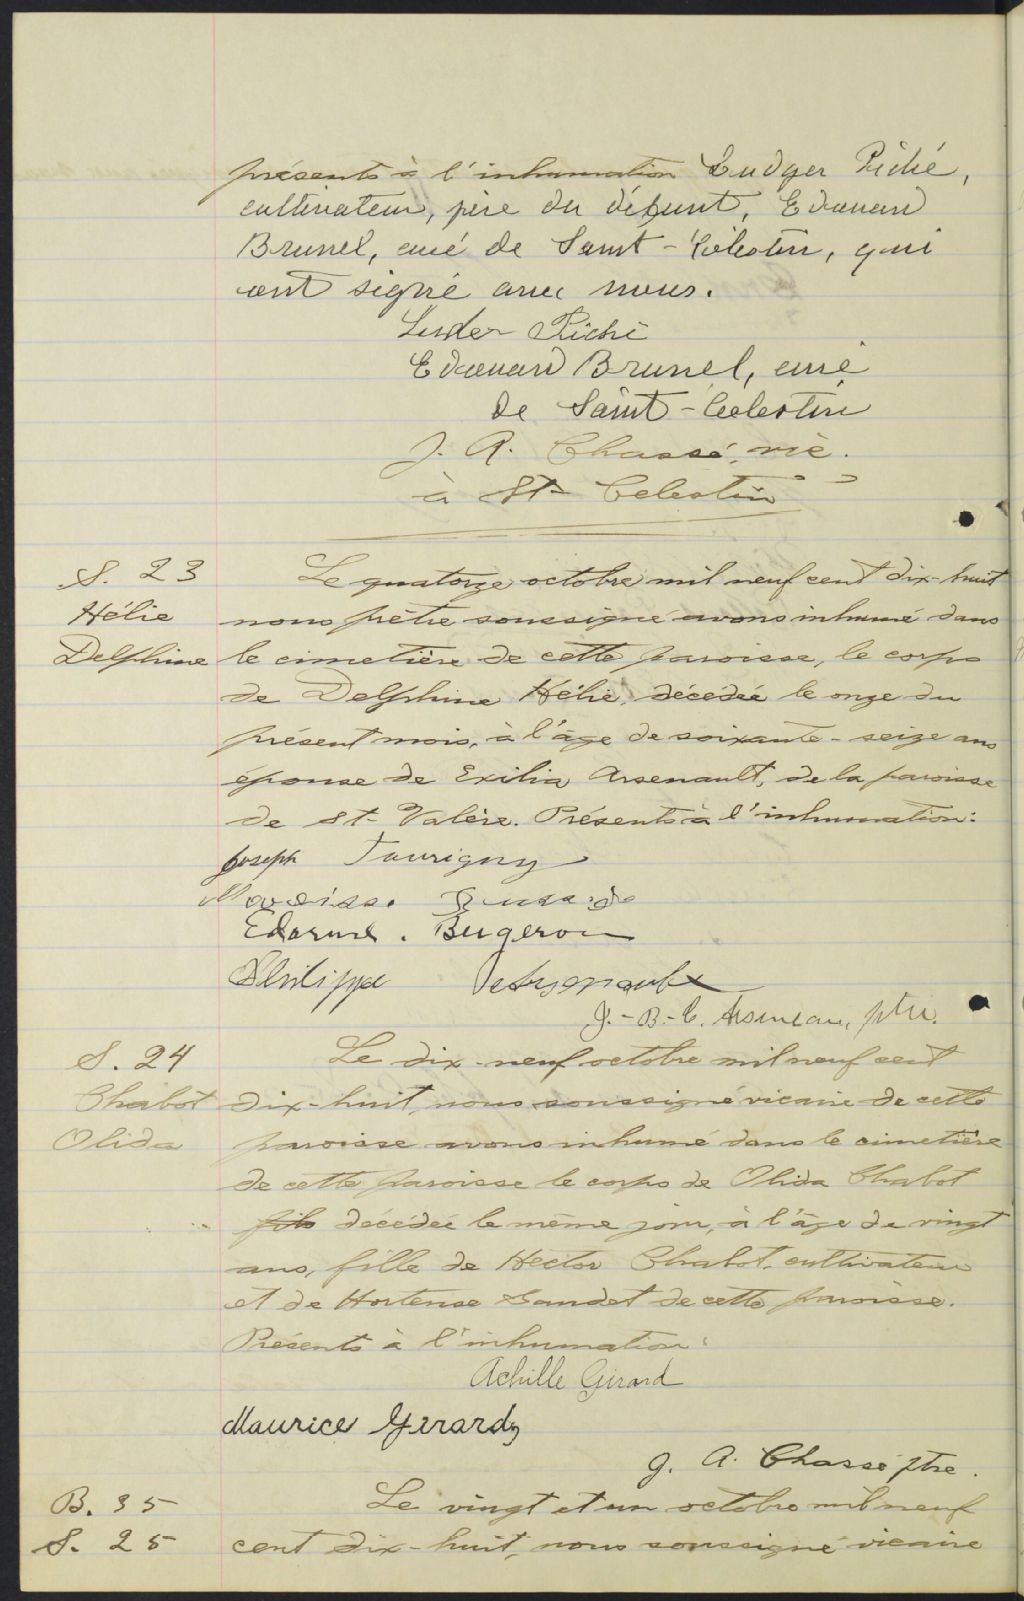 présents à l'inhumation Ludger Piché,
cultivateur, père du défunt, Edouard
Brunel, curé de Saint-Célestin, qui
ont signé avec nous.
Luder Piché
Edouard Brunel, curé
de Saint-Celestin
J. A. Chassé, vic.
à St-Celestin
S. 23
Hélie
Delphine
Le quatorze octobre mil neuf cent dix-huit
nous prêtre soussigné avons inhumé dans
le cimetière de cette paroisse, le corps
de Delphine Hélie, décédée le onze du
présent mois, à l'âge de soixante-seize ans
épouse de Exilia Arsenault, de la paroisse
de St-Valère. Présents à l'inhumation:
Joseph Tourigny
Edorard. Bergeron
Philippe
J.-B.-C. Arseneau, ptre.
S. 24
Chabot
Olida
Le dix-neuf octobre mil neuf cent
dix-huit, nous soussigné vicaire de cette
paroisse avons inhumé dans le cimetière
de cette paroisse le corps de Olida Chabot
fils décédée le même jour, à l'âge de vingt
ans, fille de Hector Chabot, cultivateur
et de Hortense Gaudet de cette paroisse.
Présents à l'inhumation:
Achille Girard
Maurice Girard
J. A. Chassé ptre.
B. 35
S. 25
Le vingt et un octobre mil neuf
cent dix-huit, nous soussigné vicaire